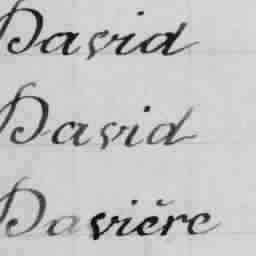 David
David
Davičre